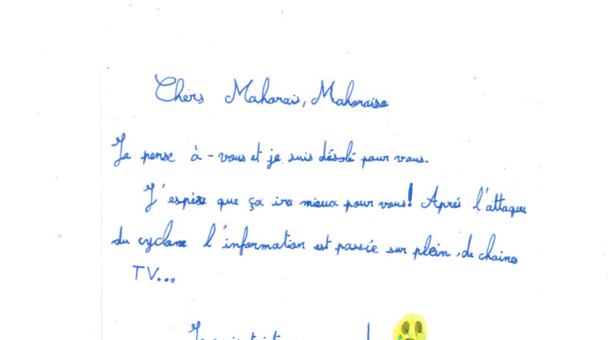 Chers Mahorais, Mahoraise
Je pense à-vous et je suis désolé pour vous.
J'espère que ça ira mieux pour vous! Après l'attaque
du cyclone l'information est passée sur plein, de chaine
TV...